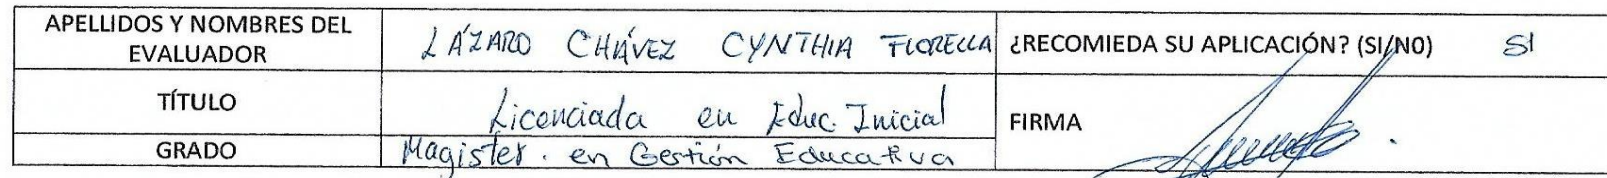 APELLIDOS Y NOMBRES DEL
EVALUADOR
LÁZARO CHÁVEZ CYNTHIA FLORELLA
¿RECOMIEDA SU APLICACIÓN? (SI/N0) SI
TÍTULO
Licenciada en Educ. Inicial
FIRMA
GRADO
Magister. en Gestión Educativa